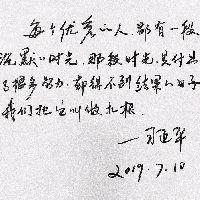 每个优秀的人,都有一段
沉默的时光,那段时光,是付出
了很多努力,却得不到结果的日子
我们把它叫做扎根。
2019.7.10